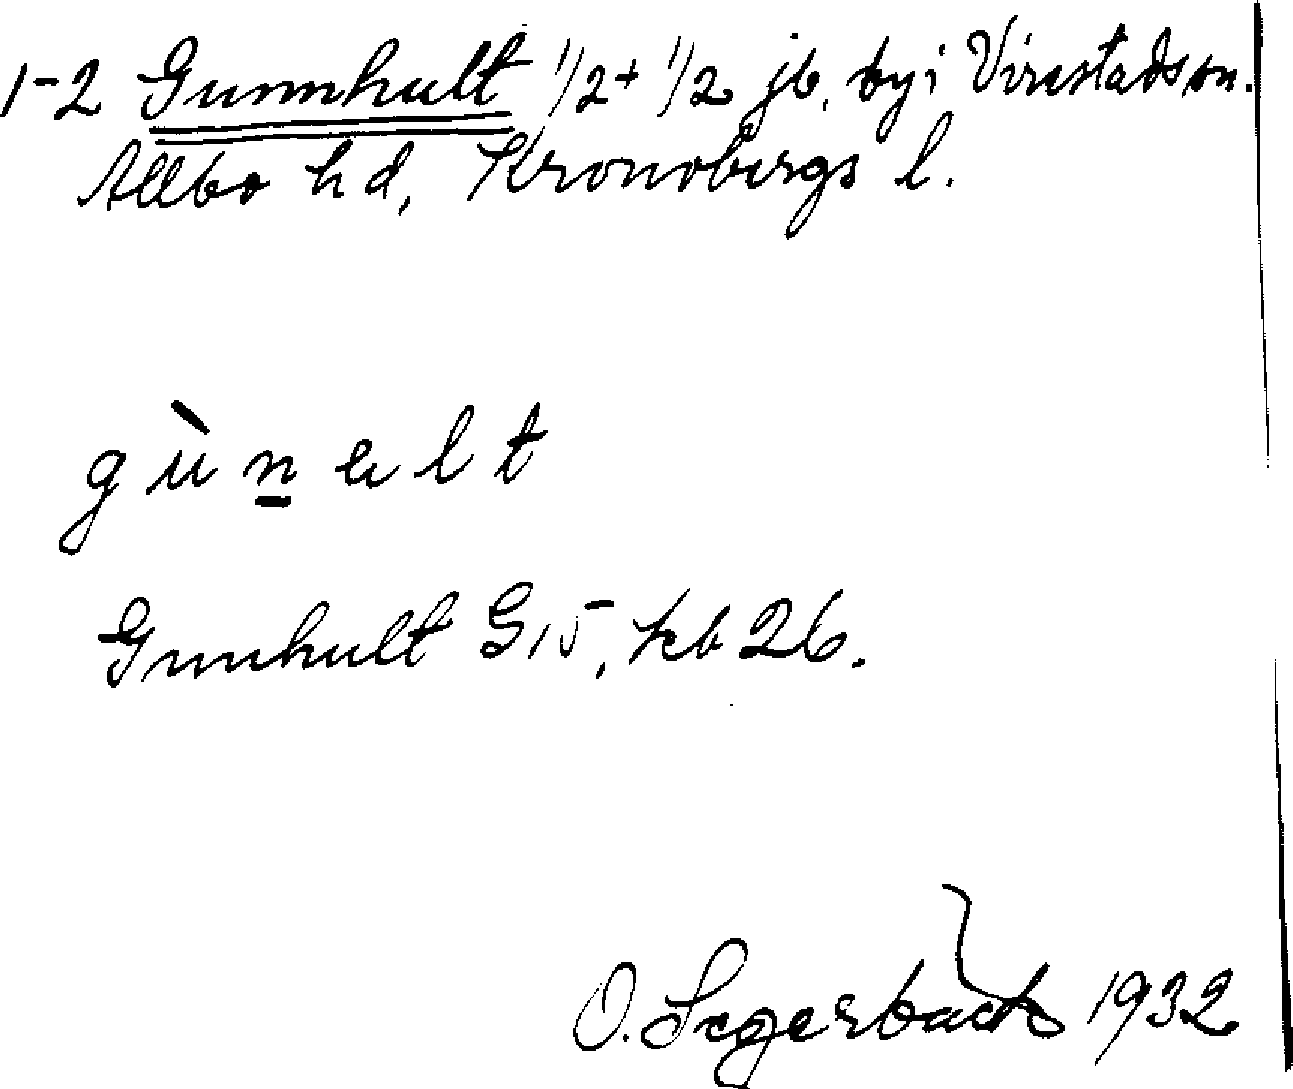 1-2 Gunnhult 1/2 + 1/2 jb. by i Virestads sn.
Allbo hd, Kronobergs l.
gùn̲elt
Gunhult G 15, kb 26.
O. Segerbäck 1932